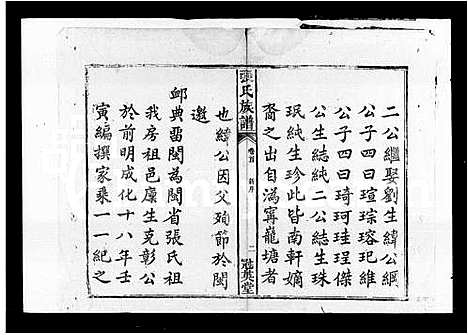 二公繼娶劉生緯公綱
公子四曰瑄琮瑢玘維
公子四曰琦珂珪珵傑
公生誌純二公誌生珠
珉純生珍此皆南軒嫡
裔之出自溈寧龍塘者
張氏族譜
卷首
二 冠英堂
也緯公因父殉節於閩
邀
邺典畱閩為閩省張氏祖
我房祖邑廩生克彰公
於前明成化十八年壬
寅編撰家乘一一紀之